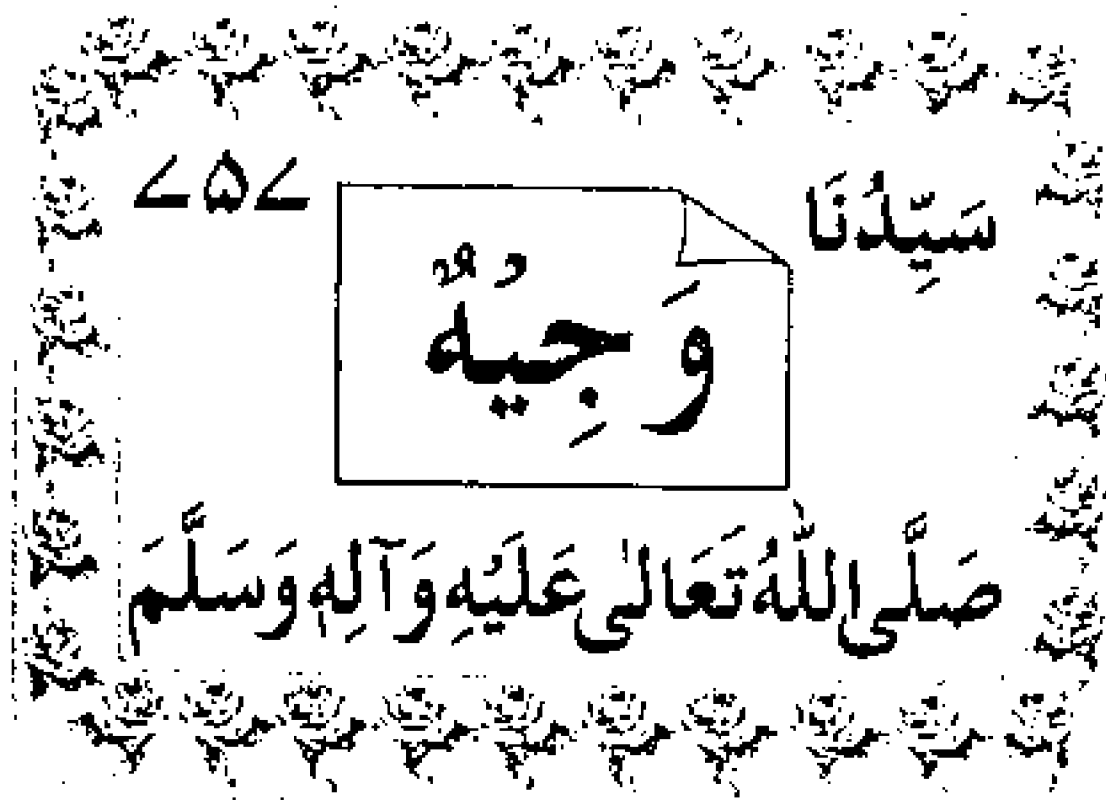 سَيِّدُنَا ۷۵۷
وَجِيْهٌ
صَلَّى اللّٰهُ تَعَالٰى عَلَيْهِ وَآلِهٖ وَسَلَّمَ